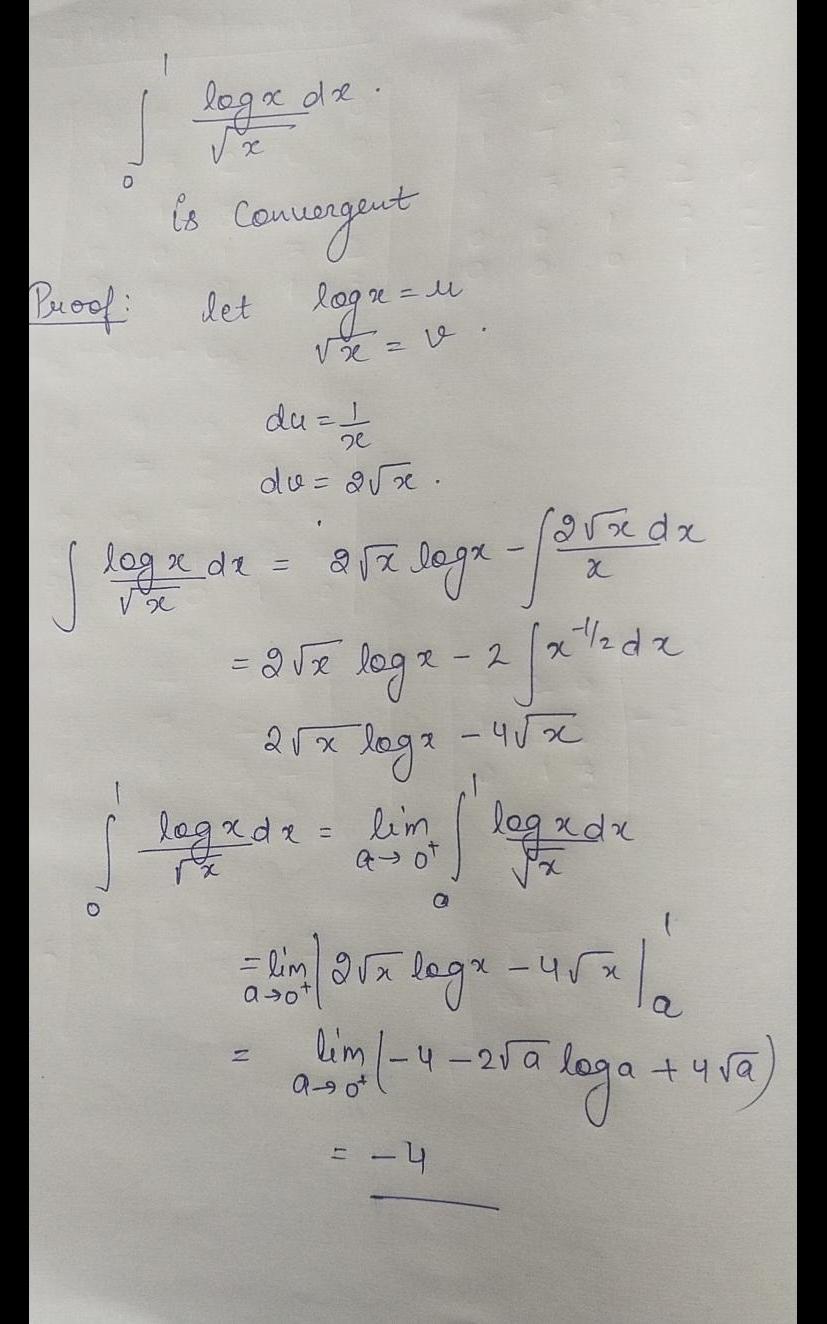 ∫₀¹ log x/√x dx.
is Convergent
Proof: let log x = u
√x = v.
du = 1/x
dv = 2√x.
∫ log x/√x dx = 2√x log x - ∫ 2√x dx/x
= 2√x log x - 2 ∫ x^-1/2 dx
2√x log x - 4√x
∫₀¹ log x/√x dx = lim a→0⁺ ∫ₐ¹ log x/√x dx
= lim a→0⁺ | 2√x log x - 4√x |ₐ¹
= lim a→0⁺ (-4 - 2√a log a + 4√a)
= -4